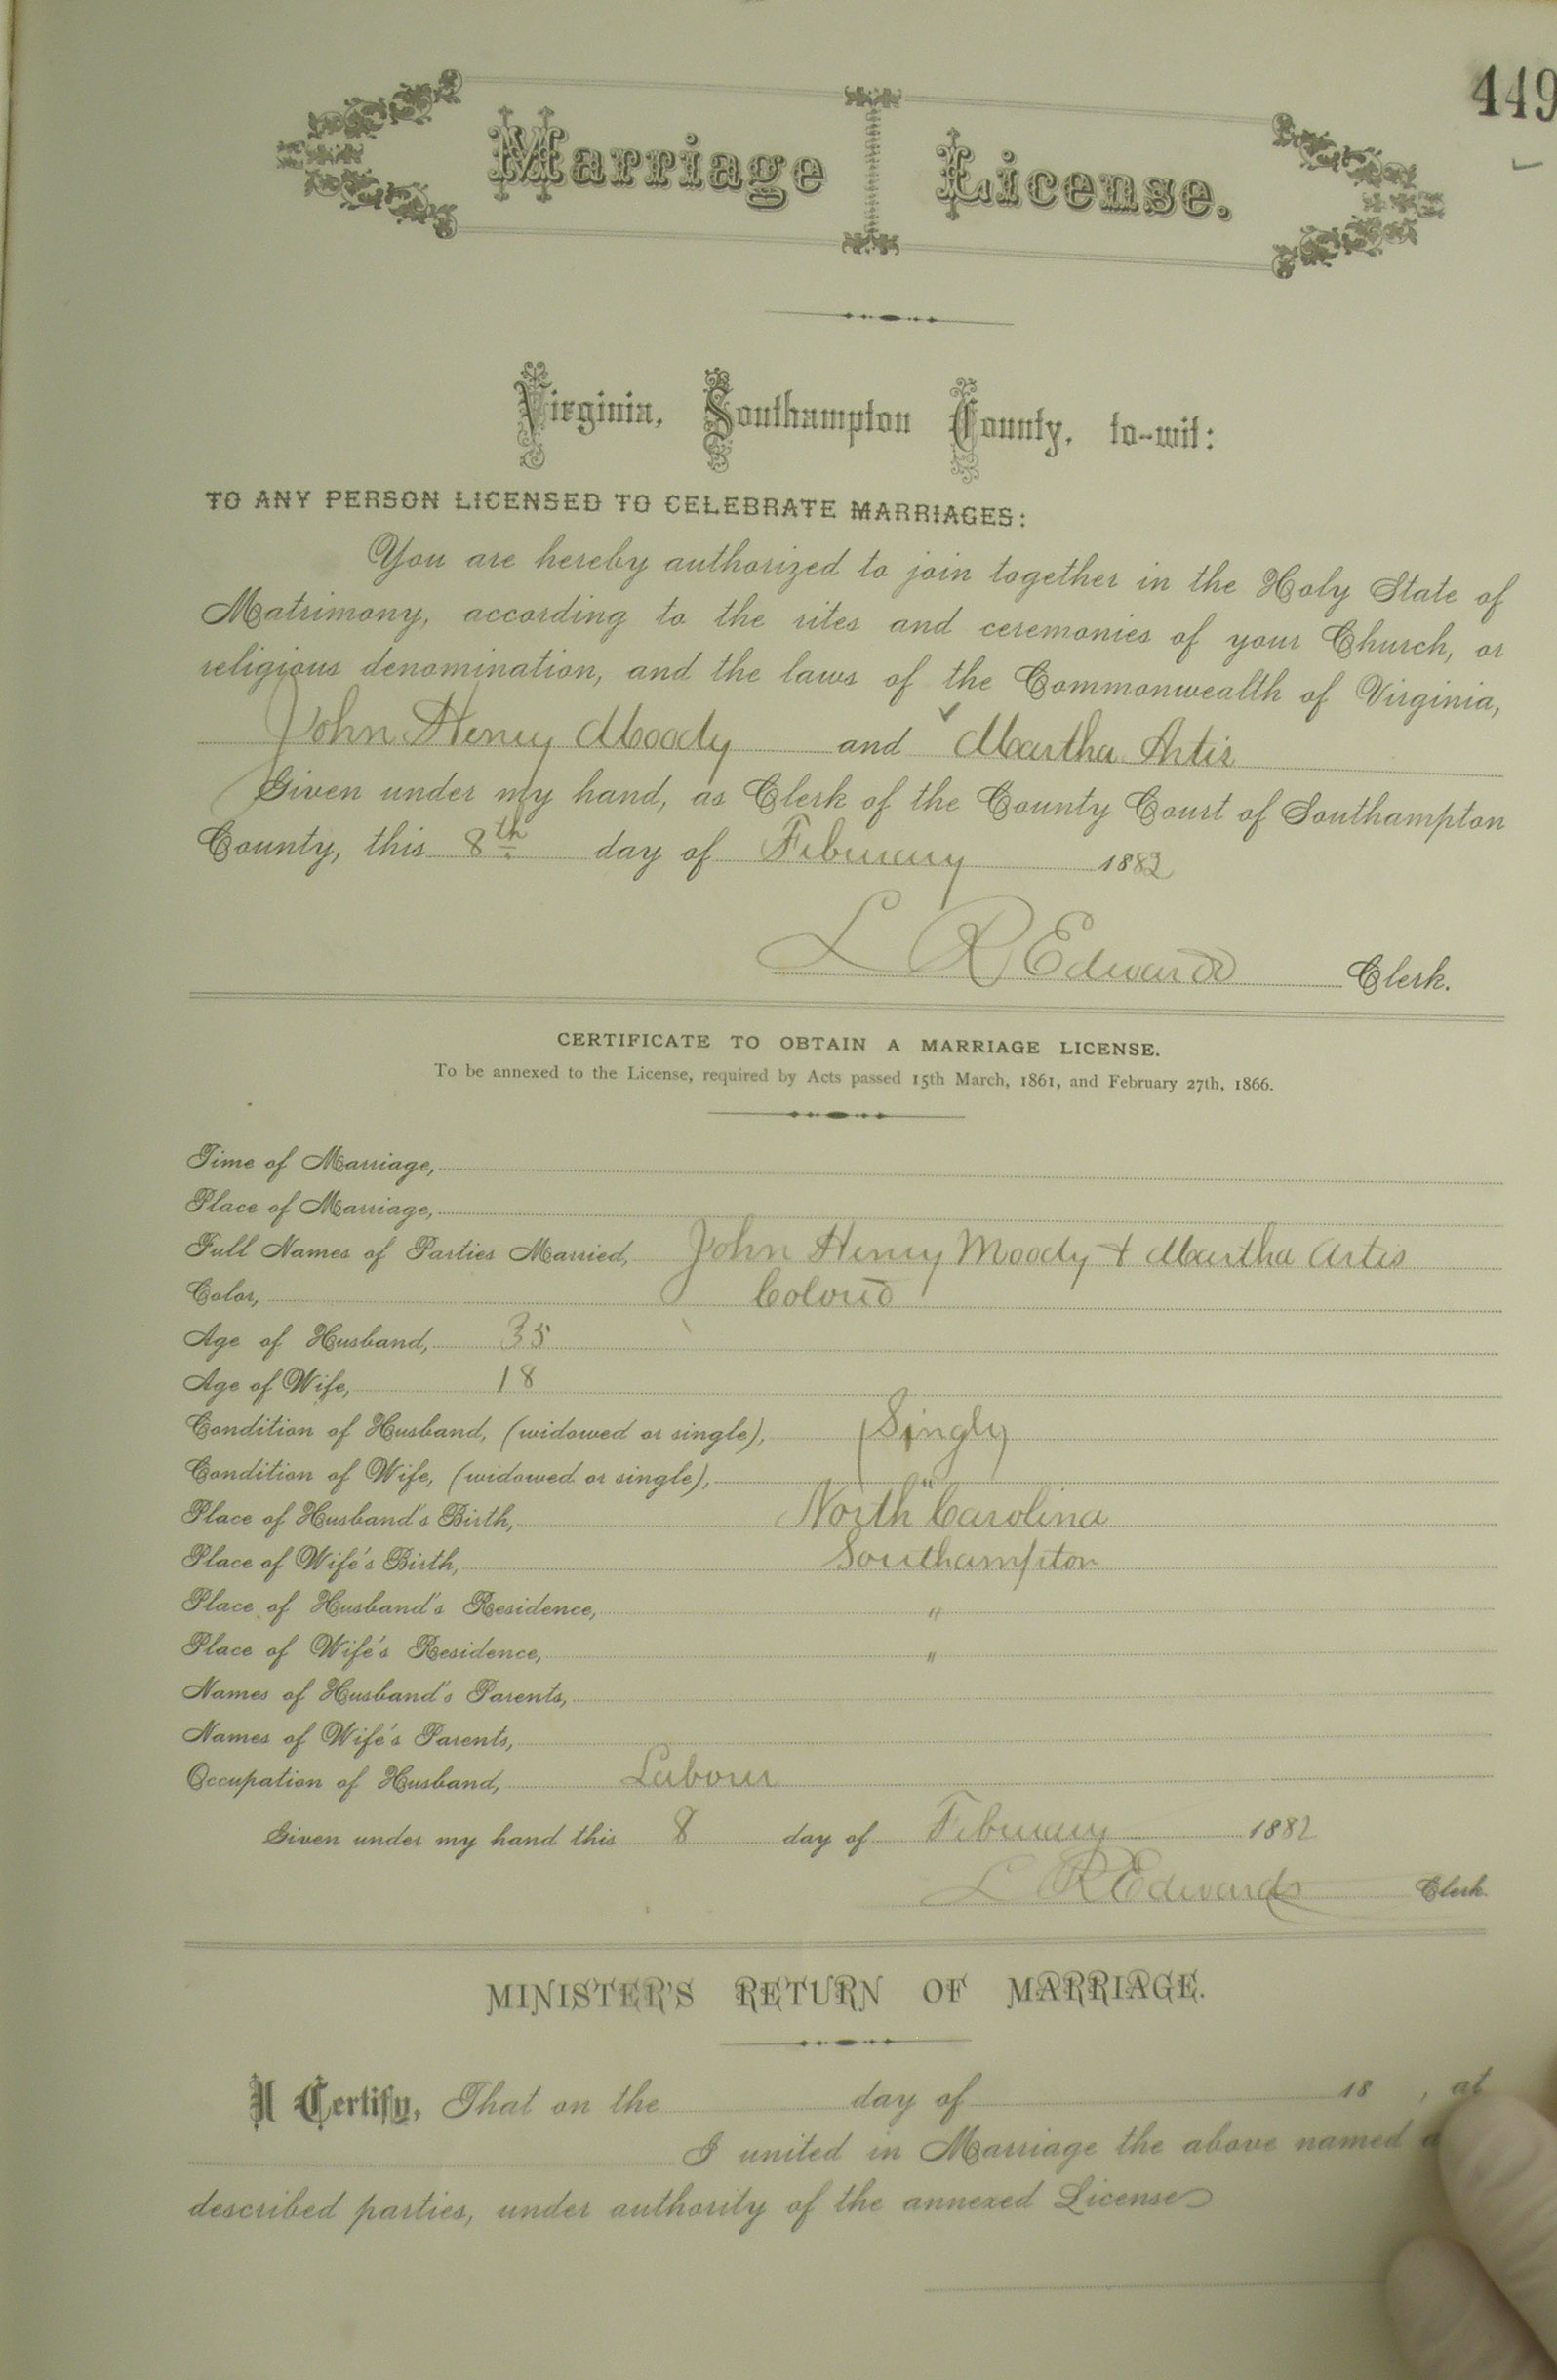 449
Marriage License.
Virginia, Southampton County, to-wit:
TO ANY PERSON LICENSED TO CELEBRATE MARRIAGES:
You are hereby authorized to join together in the Holy State of
Matrimony, according to the rites and ceremonies of your Church, or
religious denomination, and the laws of the Commonwealth of Virginia,
John Henry Moody and Martha Artis
Given under my hand, as Clerk of the County Court of Southampton
County, this 8th day of February 1882
L R Edwards Clerk.
CERTIFICATE TO OBTAIN A MARRIAGE LICENSE.
To be annexed to the License, required by Acts passed 15th March, 1861, and February 27th, 1866.
Time of Marriage,
Place of Marriage,
Full Names of Parties Married, John Henry Moody + Martha Artis
Color, Colored
Age of Husband, 35
Age of Wife, 18
Condition of Husband, (widowed or single), Singly
Condition of Wife, (widowed or single), "
Place of Husband's Birth, North Carolina
Place of Wife's Birth, Southampton
Place of Husband's Residence, "
Place of Wife's Residence, "
Names of Husband's Parents,
Names of Wife's Parents,
Occupation of Husband, Laborer
Given under my hand this 8 day of February 1882
L R Edwards Clerk.
MINISTER'S RETURN OF MARRIAGE.
I Certify, That on the day of 18 , at
I united in Marriage the above named
described parties, under authority of the annexed License